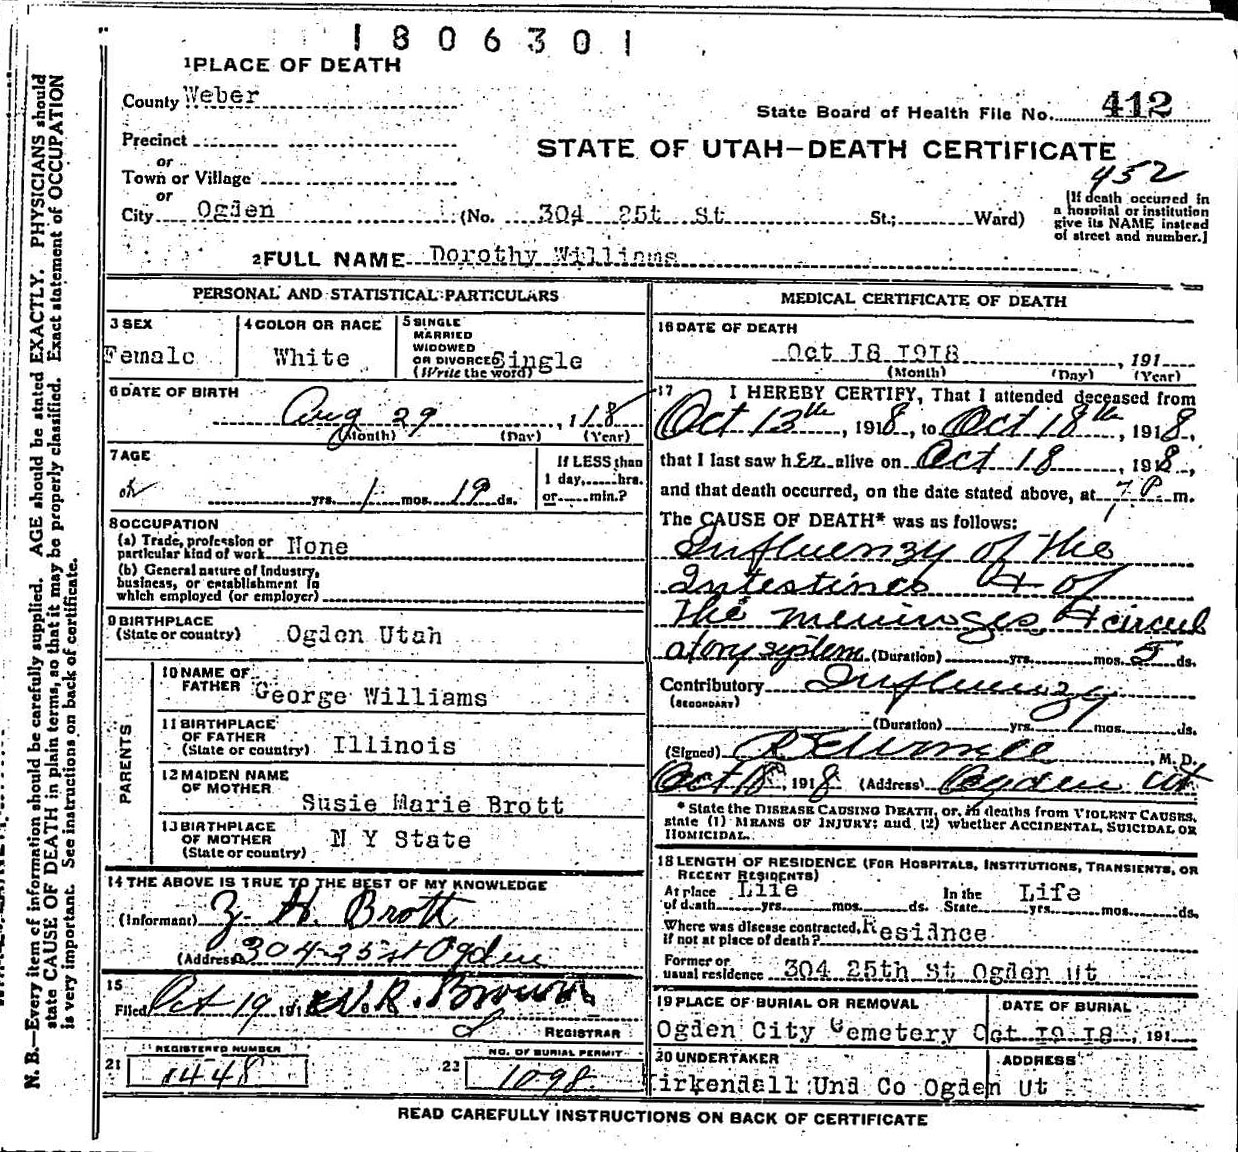 1806301
1 PLACE OF DEATH
County Weber
State Board of Health File No. 412
Precinct
or
Town or Village
or
STATE OF UTAH—DEATH CERTIFICATE
452
City Ogden (No. 304 25t St St.; Ward)
[If death occurred in
a hospital or institution
give its NAME instead
of street and number.]
2 FULL NAME Dorothy Williams
PERSONAL AND STATISTICAL PARTICULARS
3 SEX
Female
4 COLOR OR RACE
White
5 SINGLE
MARRIED
WIDOWED
OR DIVORCED Single
(Write the word)
6 DATE OF BIRTH
Aug 29, 118
(Month) (Day) (Year)
7 AGE
yrs. 1 mos. 19 ds.
If LESS than
1 day, hrs.
or min.?
8 OCCUPATION
(a) Trade, profession or
particular kind of work None
(b) General nature of Industry,
business, or establishment in
which employed (or employer)
9 BIRTHPLACE
(State or country) Ogden Utah
PARENTS
10 NAME OF
FATHER George Williams
11 BIRTHPLACE
OF FATHER
(State or country) Illinois
12 MAIDEN NAME
OF MOTHER
Susie Marie Brott
13 BIRTHPLACE
OF MOTHER
(State or country) N Y State
14 THE ABOVE IS TRUE TO THE BEST OF MY KNOWLEDGE
(Informant) Z. H. Brott
(Address 304-25 st Ogden
15
Filed Oct 19 191 W. R. Brown
REGISTRAR
21 REGISTERED NUMBER
1448
22 NO. OF BURIAL PERMIT
1098
MEDICAL CERTIFICATE OF DEATH
16 DATE OF DEATH
Oct 18 1918, 191
(Month) (Day) (Year)
17 I HEREBY CERTIFY, That I attended deceased from
Oct 13th, 1918, to Oct 18th, 1918,
that I last saw her alive on Oct 18, 1918,
and that death occurred, on the date stated above, at 7 P. m.
The CAUSE OF DEATH* was as follows:
Influenzy of the
Intestines & of
the meninges & circul
atory system (Duration) yrs. mos. 5 ds.
Contributory Influenzy
(SECONDARY)
(Duration) yrs. mos. ds.
(Signed) M. D.
Oct 18, 1918 (Address) Ogden Ut
* State the DISEASE CAUSING DEATH, or, in deaths from VIOLENT CAUSES,
state (1) MEANS OF INJURY; and (2) whether ACCIDENTAL, SUICIDAL OR
HOMICIDAL.
18 LENGTH OF RESIDENCE (FOR HOSPITALS, INSTITUTIONS, TRANSIENTS, OR
RECENT RESIDENTS)
At place Life In the Life
of death yrs. mos. ds. State yrs. mos. ds.
Where was disease contracted,
if not at place of death? Residnce
Former or
usual residence 304 25th St Ogden Ut
19 PLACE OF BURIAL OR REMOVAL
Ogden City Cemetery
DATE OF BURIAL
Oct 19 18, 191
20 UNDERTAKER
Kirkendall Und Co
ADDRESS
Ogden Ut
READ CAREFULLY INSTRUCTIONS ON BACK OF CERTIFICATE
N. B.—Every item of information should be carefully supplied. AGE should be stated EXACTLY. PHYSICIANS should
state CAUSE OF DEATH in plain terms, so that it may be properly classified. Exact statement of OCCUPATION
is very important. See instructions on back of certificate.